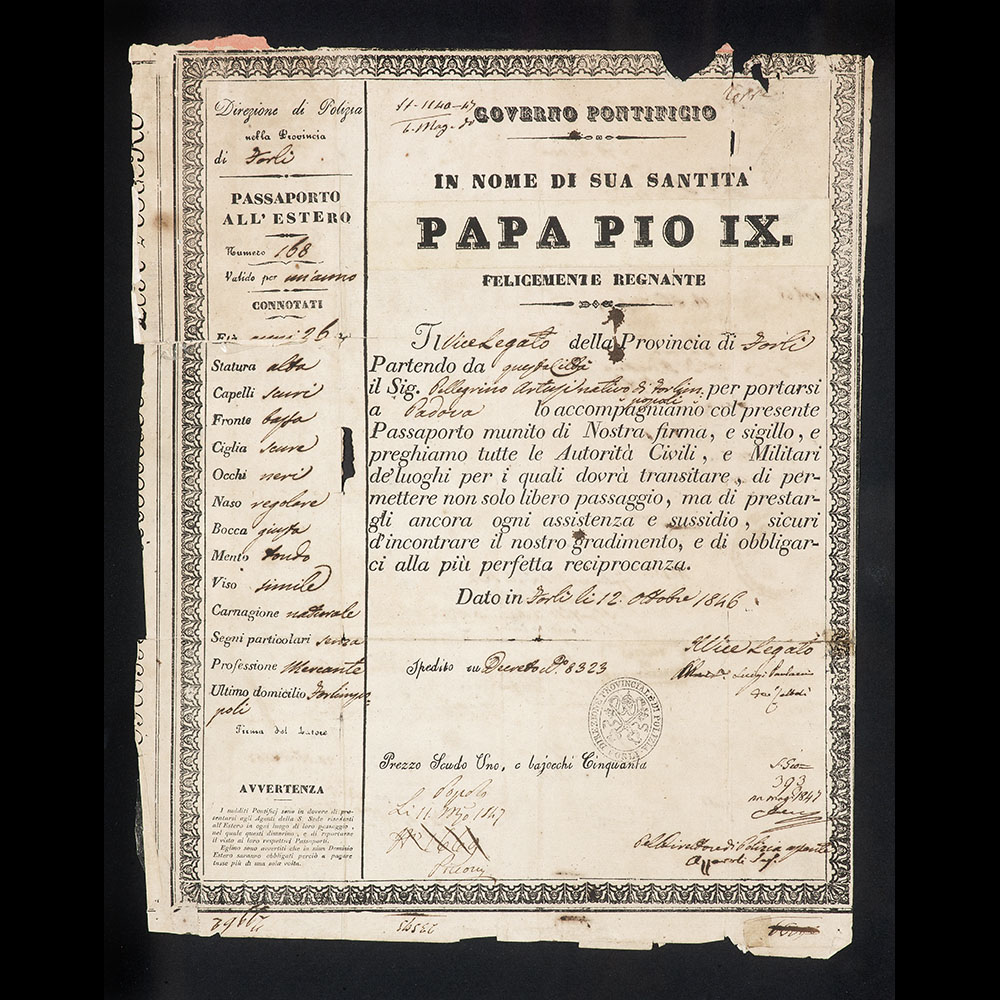 Direzione di Polizia
nella Provincia
di Forlì
PASSAPORTO
ALL' ESTERO
Numero 168
Valido per un'anno
CONNOTATI
Età anni 26
Statura alta
Capelli scuri
Fronte bassa
Ciglia scure
Occhi neri
Naso regolare
Bocca giusta
Mento tondo
Viso simile
Carnagione naturale
Segni particolari senza
Professione Mercante
Ultimo domicilio Forlimpo
poli
Firma del Latore
AVVERTENZA
I sudditi Pontificj sono in dovere di pre-
sentarsi agli Agenti della S. Sede residenti
all'Estero in ogni luogo di loro passaggio,
nel quale questi dimorino, e di riportarne
il visto ai loro respettivi Passaporti.
Eglino sono avvertiti che in niun Dominio
Estero saranno obbligati perciò a pagare
tassa più di una sola volta.
GOVERNO PONTIFICIO
IN NOME DI SUA SANTITA'
PAPA PIO IX.
FELICEMENTE REGNANTE
Il Vice Legato della Provincia di Forlì
Partendo da questa Città
il Sig. Pellegrino Artusi nativo di Forlim
popoli per portarsi
a Padova lo accompagniamo col presente
Passaporto munito di Nostra firma, e sigillo, e
preghiamo tutte le Autorità Civili, e Militari
de' luoghi per i quali dovrà transitare, di per-
mettere non solo libero passaggio, ma di prestar-
gli ancora ogni assistenza e sussidio, sicuri
d'incontrare il nostro gradimento, e di obbligar-
ci alla più perfetta reciprocanza.
Dato in Forlì li 12 Ottobre 1846
Il Vice Legato
Spedito su Decreto N.° 8323
DIREZIONE PROVINCIALE DI POLIZIA FORLI
Prezzo Scudo Uno, e bajocchi Cinquanta
393
1847